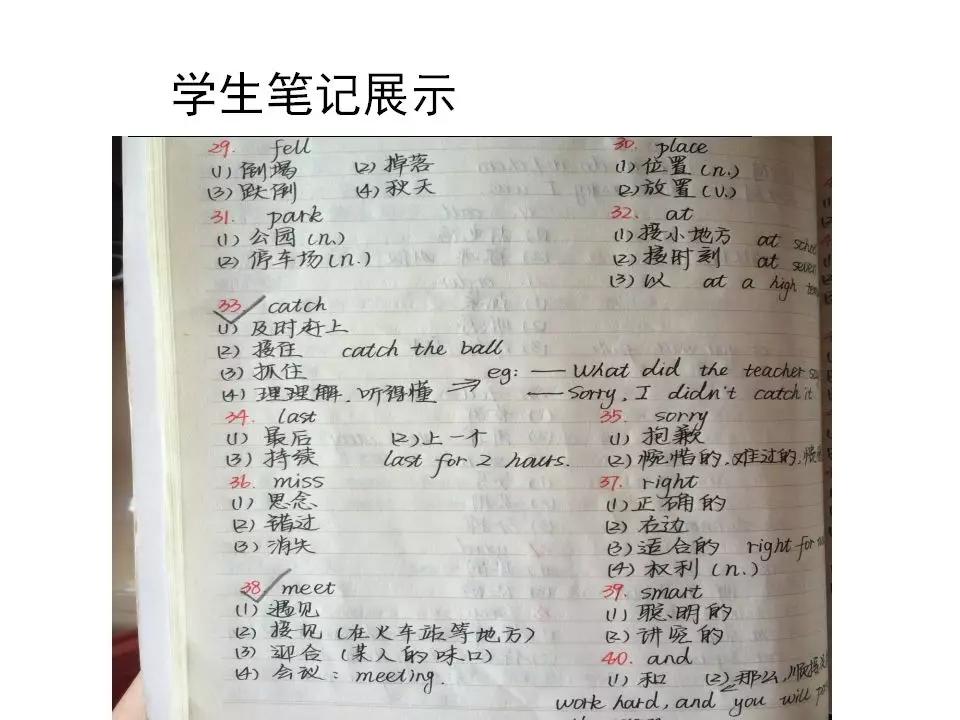 学生笔记展示
29. fell
(1) 倒塌 (2) 掉落
(3) 跌倒 (4) 秋天
30. place
(1) 位置 (n.)
(2) 放置 (v.)
31. park
(1) 公园 (n.)
(2) 停车场 (n.)
32. at
(1) 接小地方 at
(2) 接时刻 at
(3) 以 at a high
33. catch
(1) 及时赶上
(2) 接住 catch the ball
(3) 抓住
(4) 理理解.听得懂
eg: — What did the teacher
— Sorry, I didn't catch it
34. last
(1) 最后 (2) 上一个
(3) 持续 last for 2 hours.
35. sorry
(1) 抱歉
(2) 惋惜的,难过的,
36. miss
(1) 思念
(2) 错过
(3) 消失
37. right
(1) 正确的
(2) 右边
(3) 适合的 right for
(4) 权利 (n.)
38. meet
(1) 遇见
(2) 接见 (在火车站等地方)
(3) 迎合 (某人的味口)
(4) 会议: meeting.
39. smart
(1) 聪明的
(2) 讲究的
40. and
(1) 和 (2) 那么,
work hard, and you will